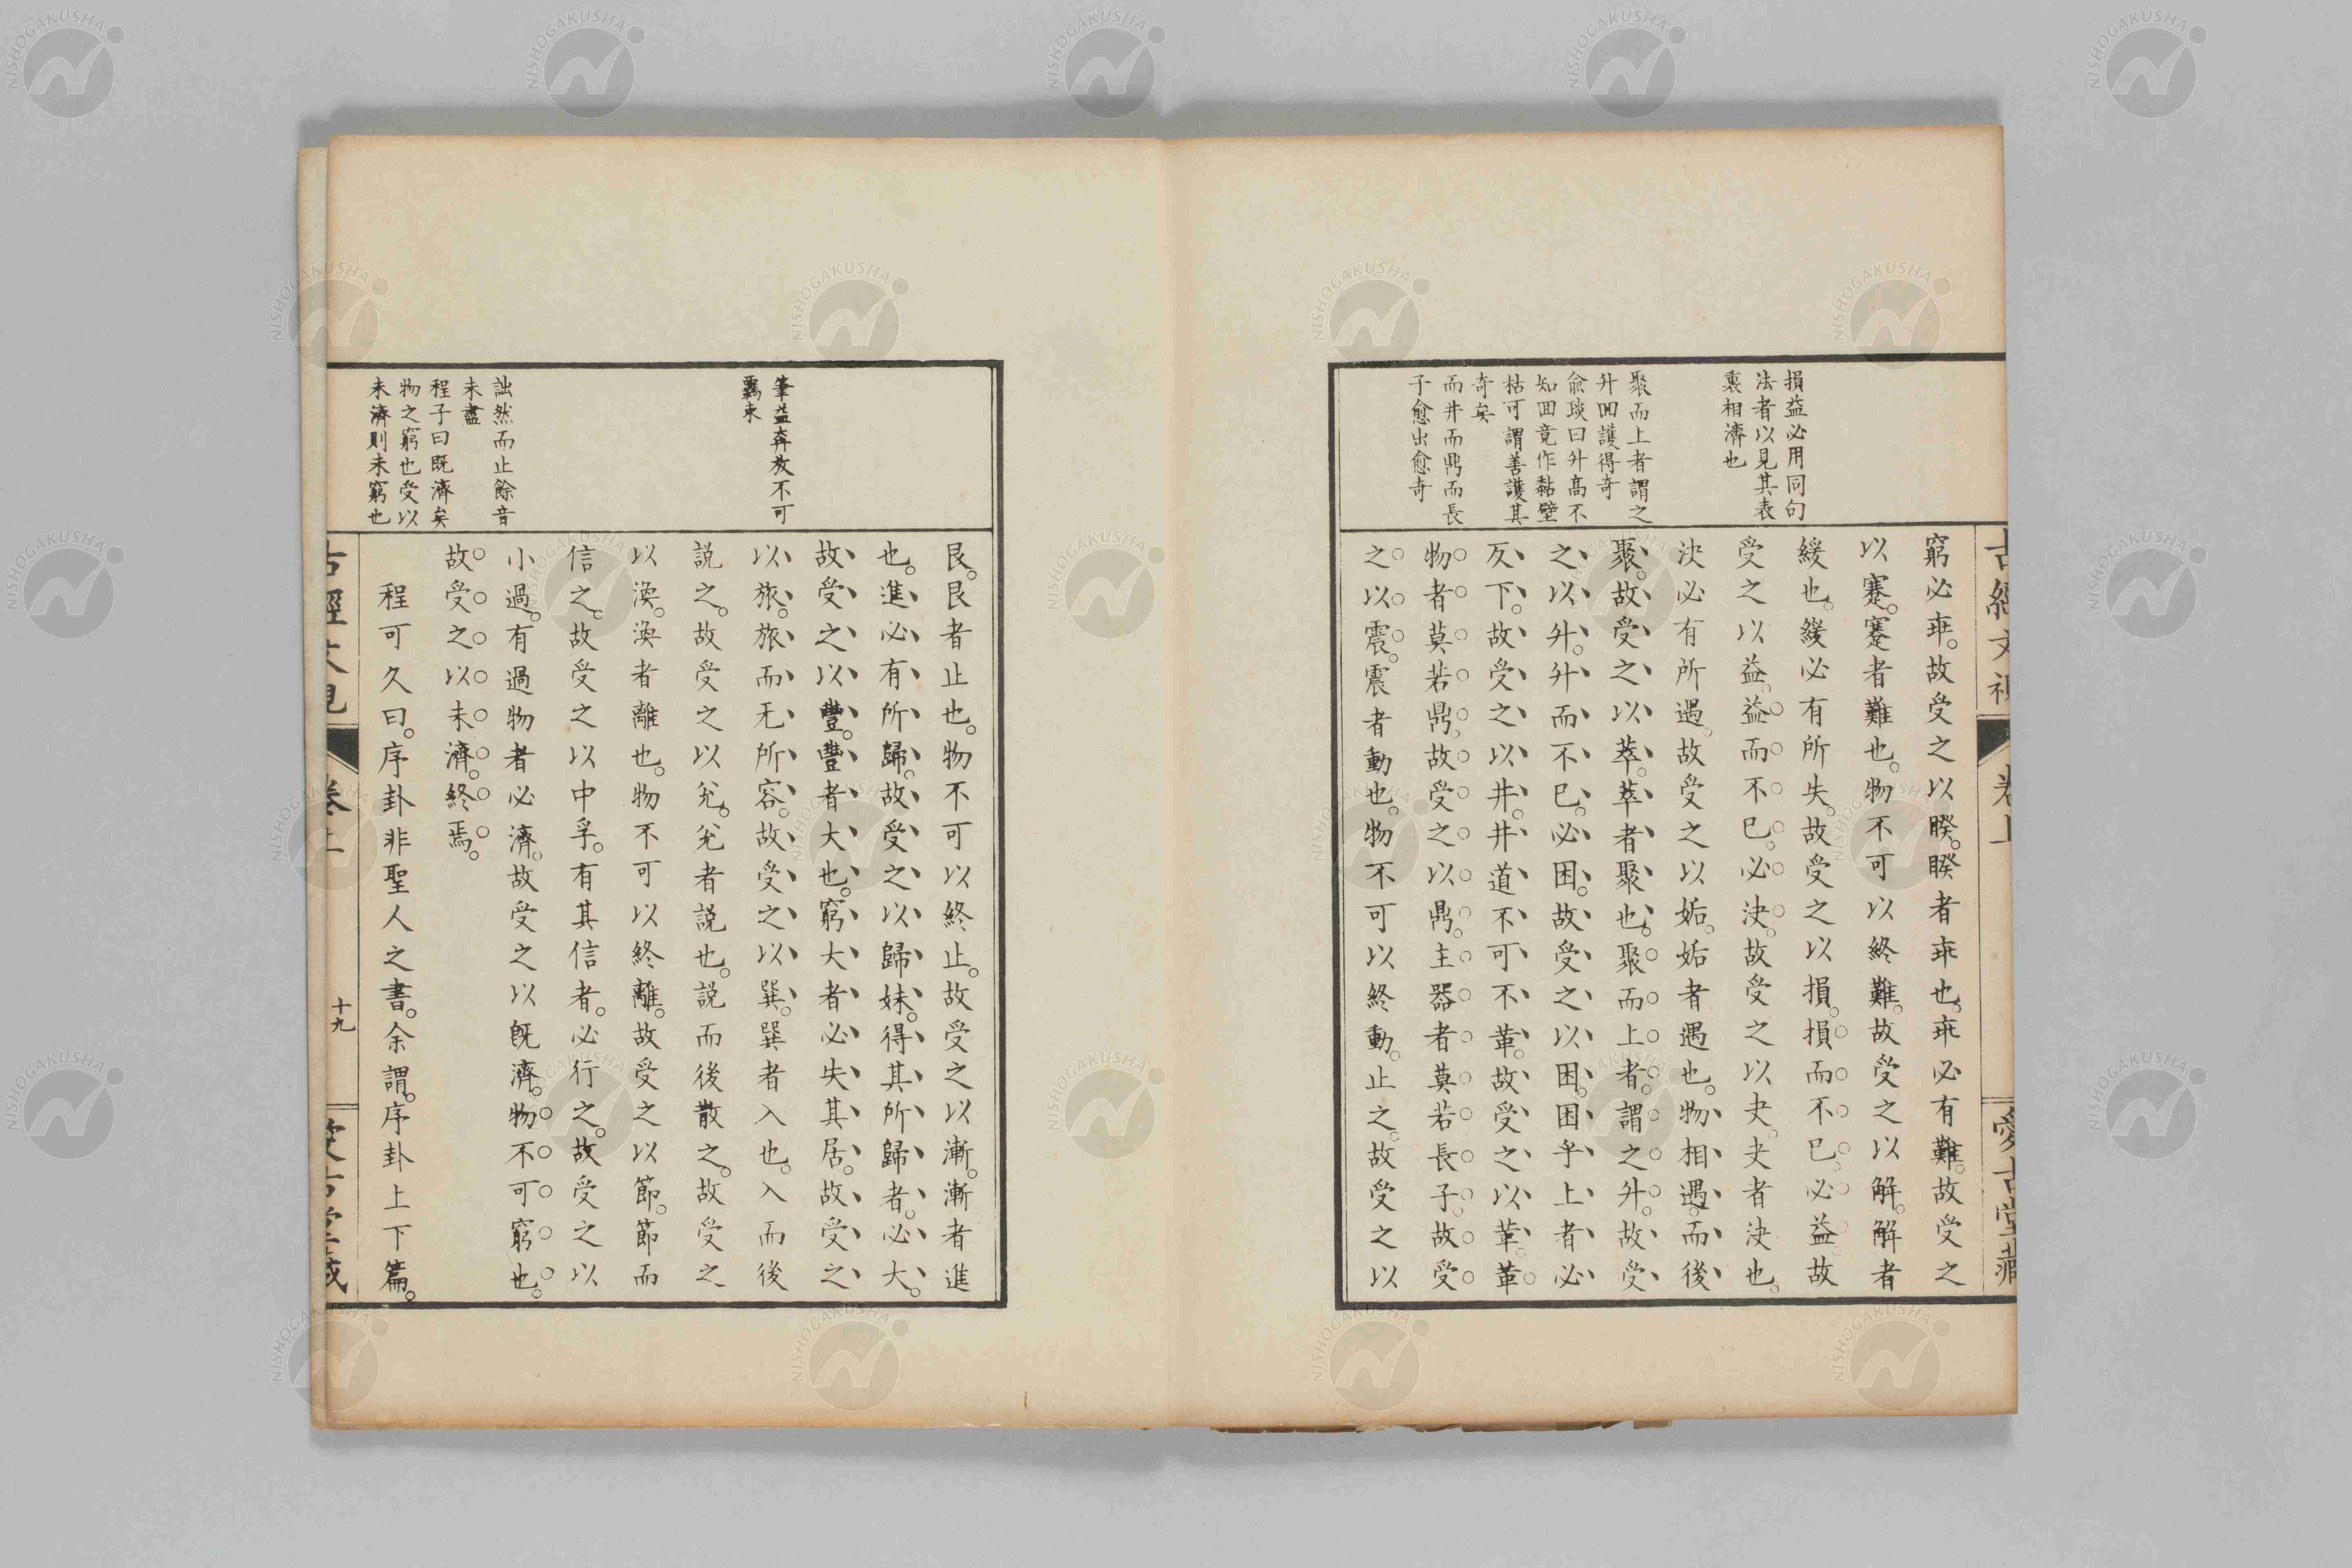 古經文視
卷上
愛古堂藏
損益必用同句
法者以見其表
裏相濟也
聚而上者謂之
升回護得奇
俞琰曰升高不
知回竟作黏壁
枯可謂善護其
奇矣
而井而鼎而長
子愈出愈奇
窮必乖。故受之以睽。睽者乖也。乖必有難。故受之
以蹇。蹇者難也。物不可以終難。故受之以解。解者
緩也。緩必有所失。故受之以損。損而不已。必益。故
受之以益。益而不已。必決。故受之以夬。夬者決也。
決必有所遇。故受之以姤。姤者遇也。物相遇。而後
聚。故受之以萃。萃者聚也。聚而上者。謂之升。故受
之以升。升而不已。必困。故受之以困。困乎上者。必
反下。故受之以井。井道不可不革。故受之以革。革
物者莫若鼎。故受之以鼎。主器者莫若長子。故受
之以震。震者動也。物不可以終動。止之。故受之以
筆益奔放不可
羈束
詘然而止餘音
未盡
程子曰既濟矣
物之窮也受以
未濟則未窮也
艮。艮者止也。物不可以終止。故受之以漸。漸者進
也。進必有所歸。故受之以歸妹。得其所歸者。必大。
故受之以豐。豐者大也。窮大者必失其居。故受之
以旅。旅而无所容。故受之以巽。巽者入也。入而後
説之。故受之以兌。兌者説也。説而後散之。故受之
以渙。渙者離也。物不可以終離。故受之以節。節而
信之。故受之以中孚。有其信者。必行之。故受之以
小過。有過物者必濟。故受之以既濟。物不可窮也。
故受之以未濟。終焉。
程可久曰。序卦非聖人之書。余謂。序卦上下篇。
十九
NISHOGAKUSHA